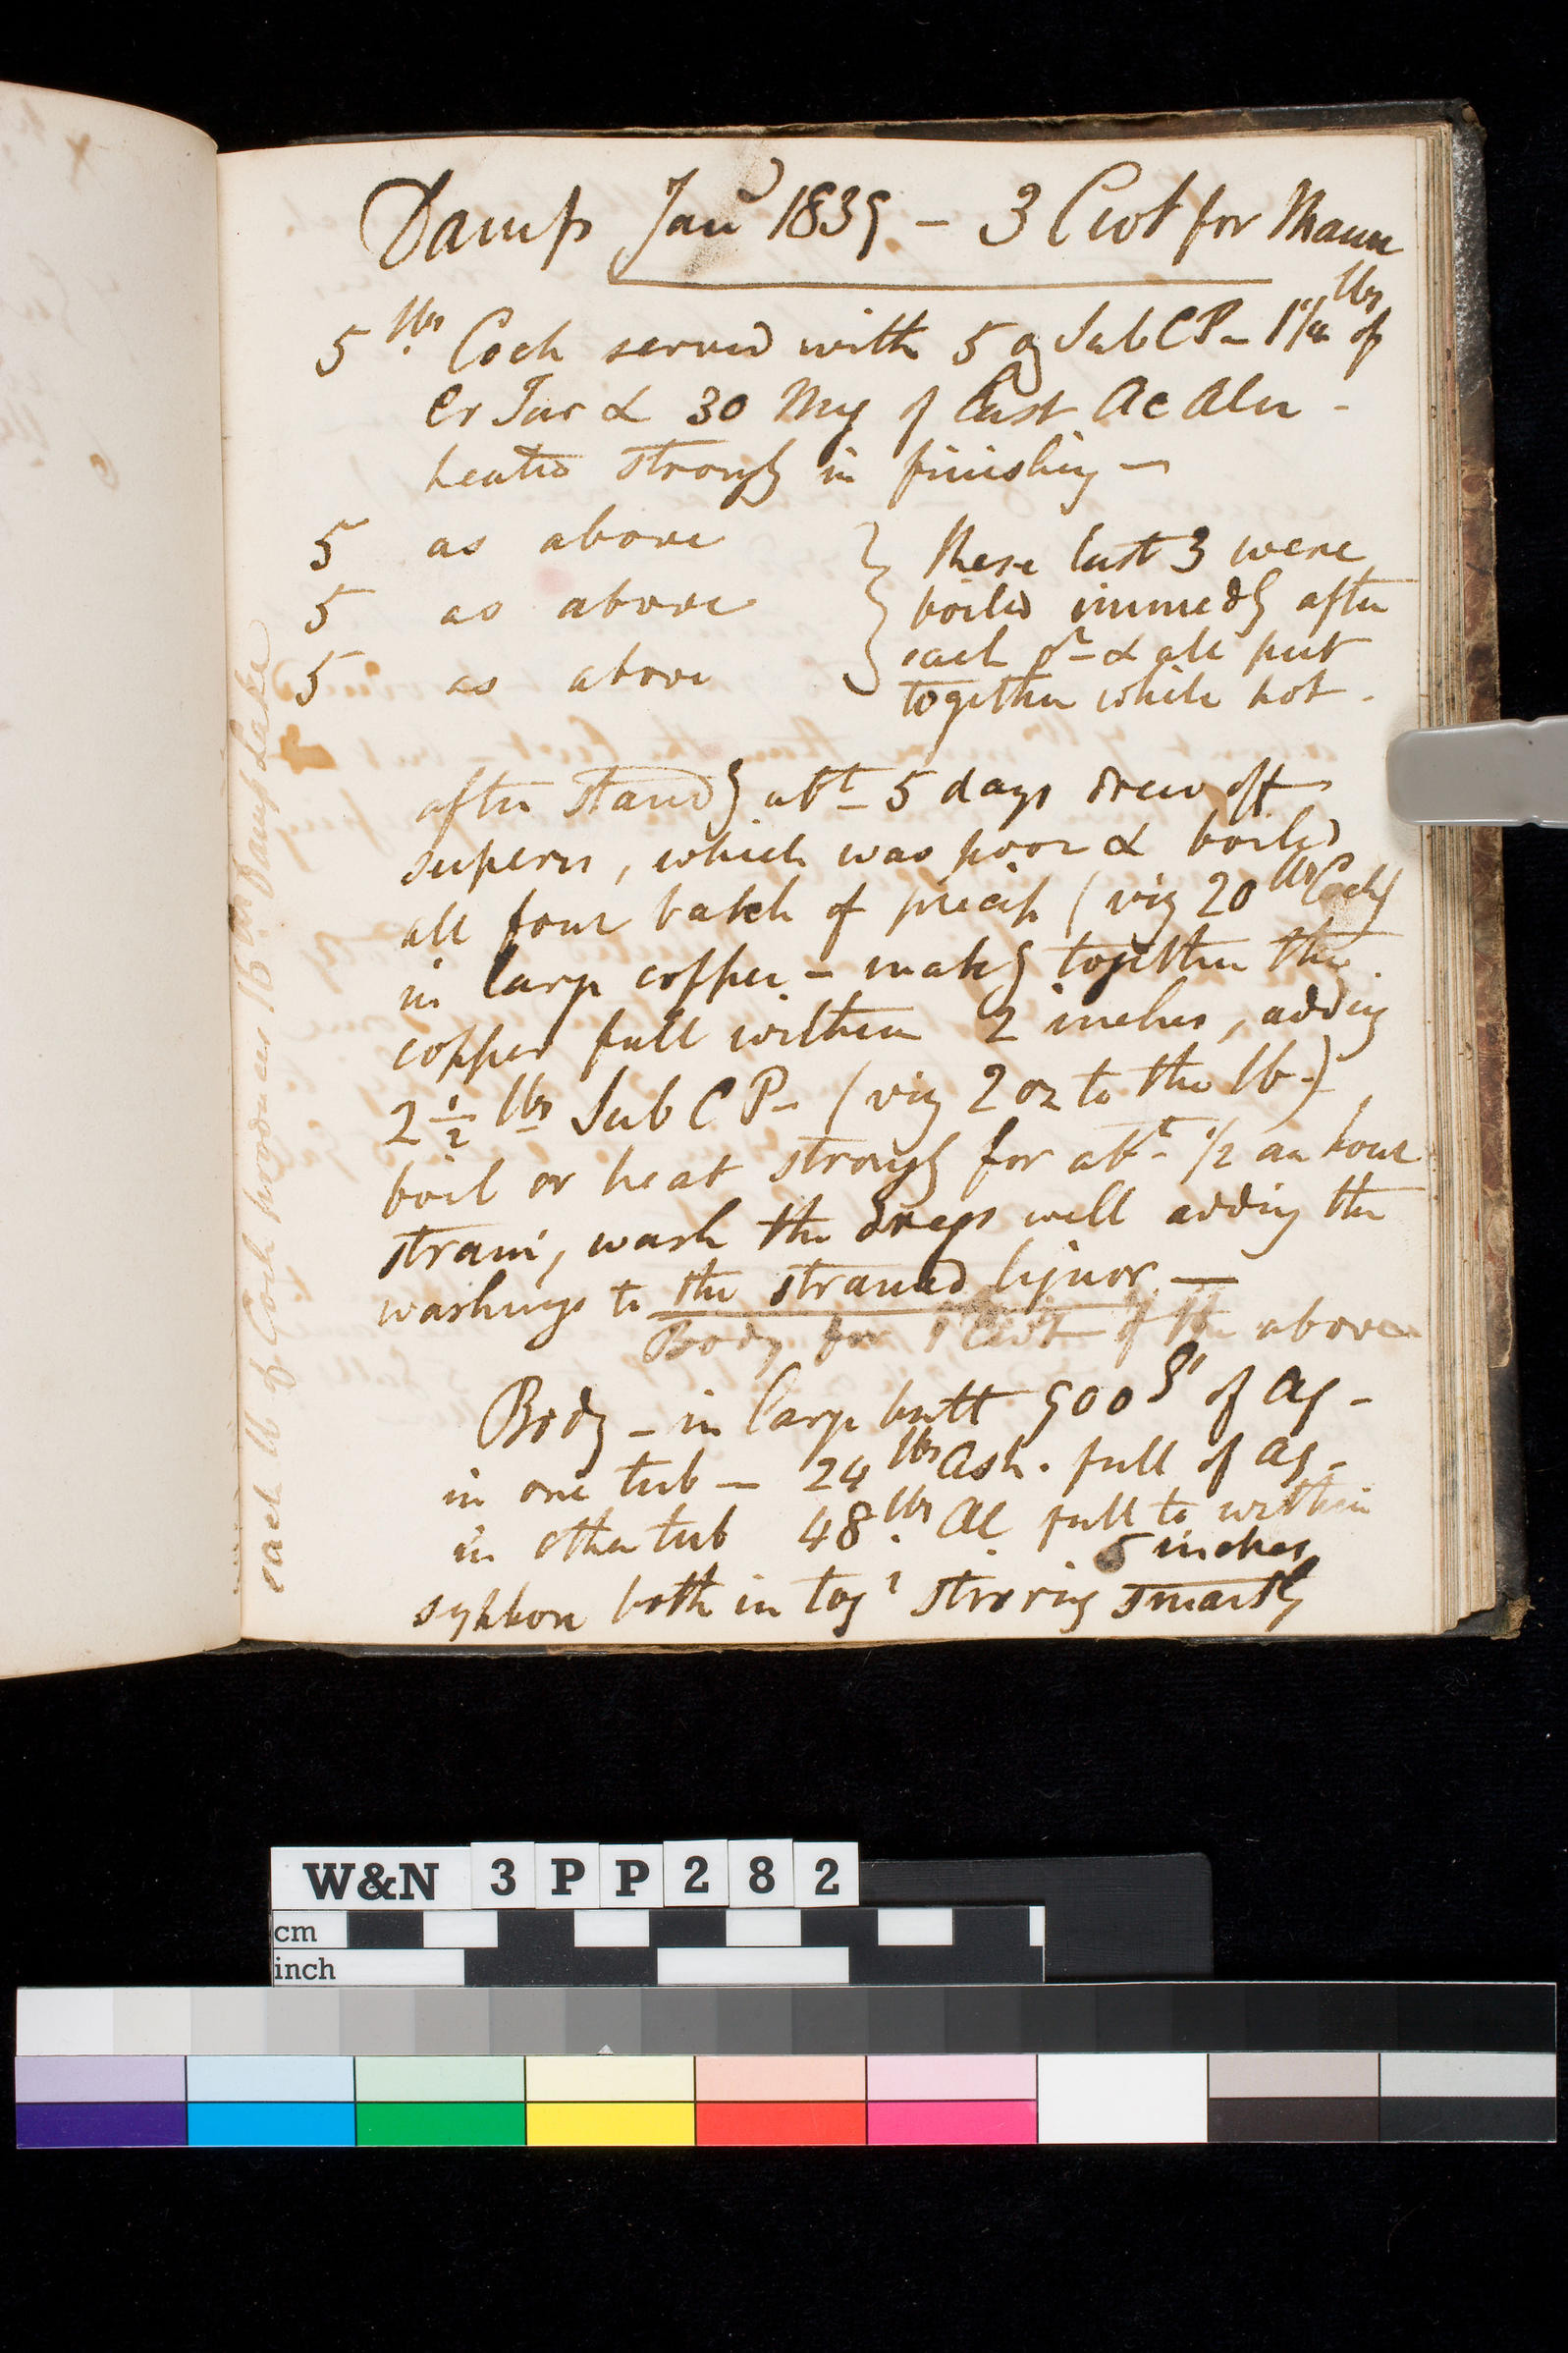 Damp Jany 1839 - 3 Cwt for Mann
5 lbs Coch served with 5 oz Sub C P - 1 1/4 lbs of
Cr Tar & 30 Mg of Cast Ac Alu -
heated strongly in finishing -
5 as above
5 as above
5 as above
These last 3 were
boiled immedy after
each or - & all put
together while hot -
after standg abt 5 days drew off
supern, which was poor & boiled
all four batch of precip (viz 20 lbs Coch)
in large copper - makg together the
copper full within 2 inches, adding
2 1/2 lbs Sub C P - (viz 2 oz to the lb -)
boil or heat strongly for abt 1/2 an hour
strain, wash the dregs well adding the
washings to the strained liquor -
Body for 1 Cwt of the above
Body - in large butt 900 of aq -
in one tub - 24 lbs Ash. full of aq -
in other tub 48 lbs Al full to within
5 inches
syphon both in togr stirring smartly
each lb of Coch produces 16 lbs Damp Lake
W&N 3PP282
cm
inch